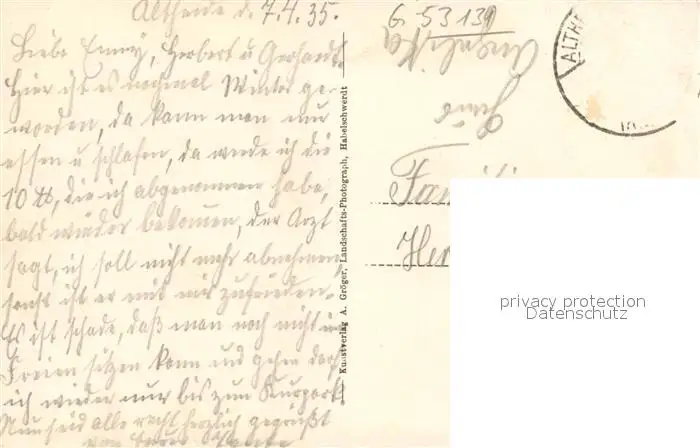 Altheide d. 7.4.35.
Liebe Emmy, Herbert u Gerhardt.
Hier ist es nochmal Winter ge-
worden, da kann man nur
essen u schlafen, da werde ich die
10 ℔, die ich abgenommen habe,
bald wieder bekommen, der Arzt
sagt, ich soll nicht mehr abnehmen
sonst ist er mit mir zufrieden.
Es ist schade, daß man noch nicht im
Freien sitzen kann und gehen darf
ich wieder nur bis zum Kurpark
Nun seid alle recht herzlich gegrüßt
von Eurer
Kunstverlag A. Gröger, Landschafts-Photograph, Habelschwerdt
G 53139
Angelika
ALTH
Her
privacy protection
Datenschutz